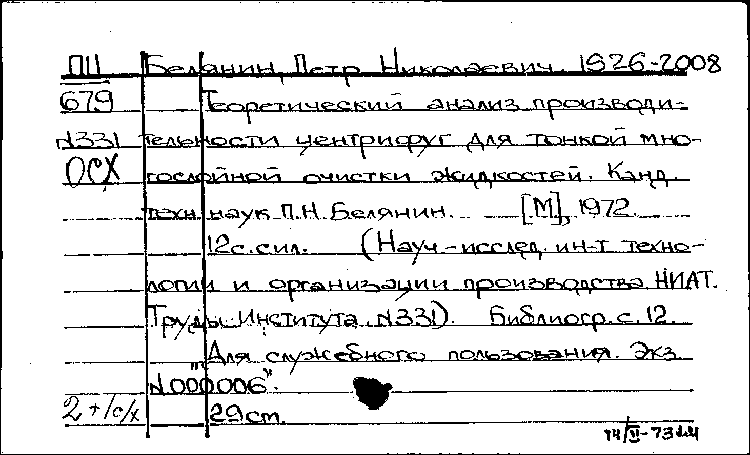 ПЦ Белянин, Петр Николаевич. 1926-2008
679 Теоретический анализ производи-
N331 тельности центрифуг для тонкой мно-
ОСХ гослойной очистки жидкостей. Канд.
техн. наук П.Н. Белянин. [М], 1972.
12с. с ил. (Науч.-исслед. ин-т техно-
логии и организации производства НИАТ.
Труды Института. N331). Библиогр. с. 12.
"Для служебного пользования. Экз.
N000006".
2+1с/х 29 cm.
14/VI-73